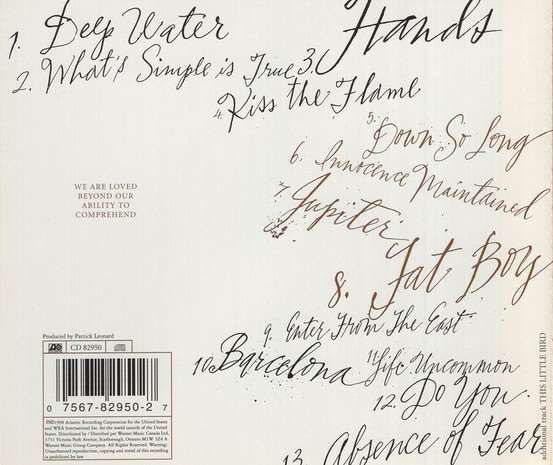 1. Deep Water
2. What's Simple is True
3. Hands
4. Kiss the Flame
5. Down So Long
6. Innocence Maintained
7. Jupiter
8. Fat Boy
9. Enter From The East
10. Barcelona
11. Life Uncommon
12. Do You
13. Absence of Fear
WE ARE LOVED
BEYOND OUR
ABILITY TO
COMPREHEND
Produced by Patrick Leonard
CD 82950
0 7567-82950-2 7
℗©1998 Atlantic Recording Corporation for the United States
and WEA International Inc. for the world outside of the United
States. Distributed by / Distribué par Warner Music Canada Ltd.,
3751 Victoria Park Avenue, Scarborough, Ontario M1W 3Z4 A
Warner Music Group Company. All Rights Reserved. Warning:
Unauthorized reproduction, copying and rental of this recording
is prohibited by law
additional track THIS LITTLE BIRD